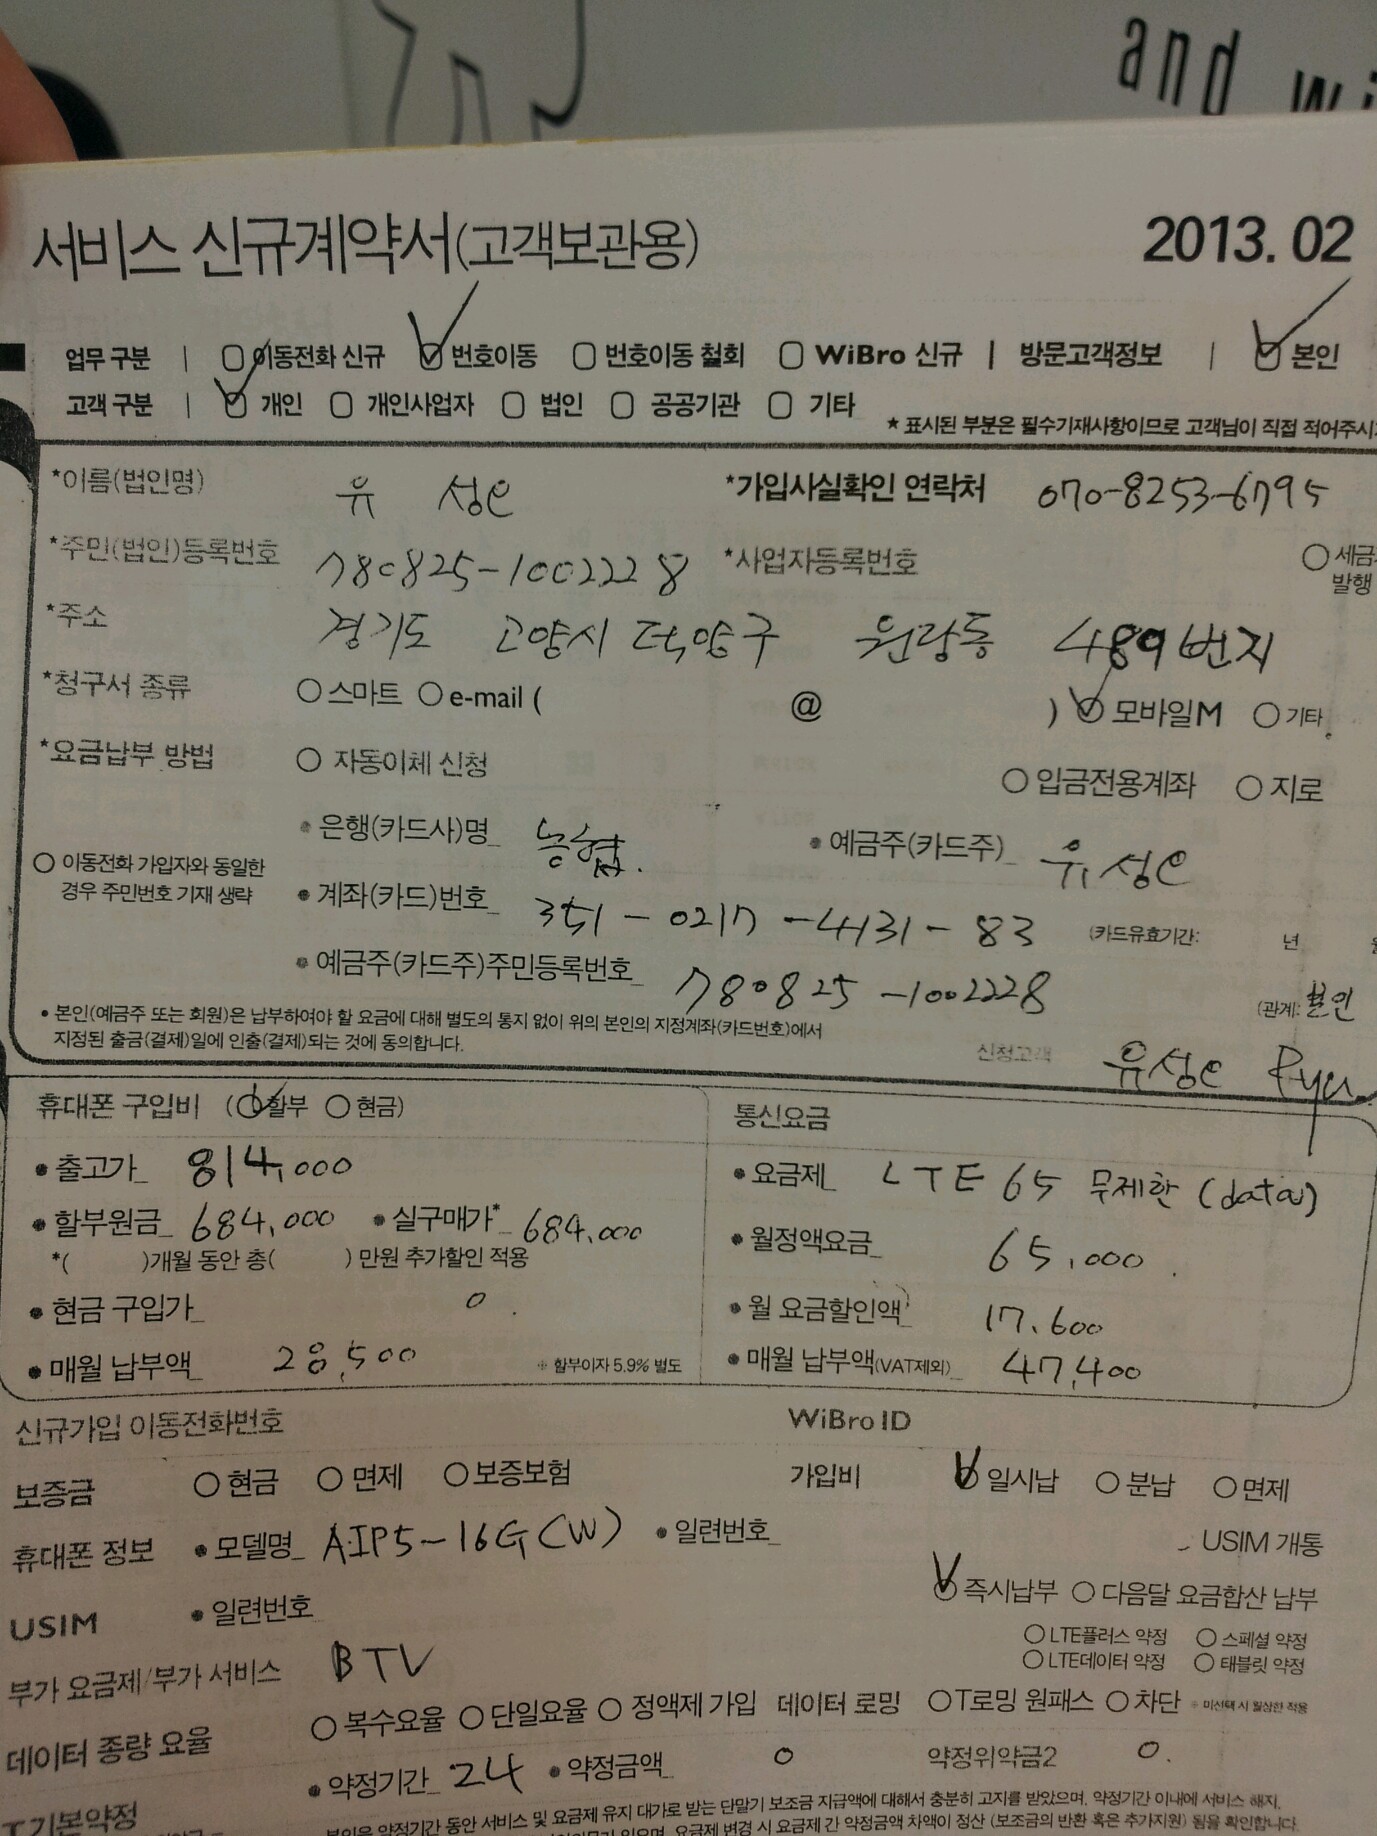 and wi
서비스 신규계약서(고객보관용) 2013. 02
업무 구분 | 이동전화 신규 번호이동 번호이동 철회 WiBro 신규 | 방문고객정보 | 본인
고객 구분 | 개인 개인사업자 법인 공공기관 기타
* 표시된 부분은 필수기재사항이므로 고객님이 직접 적어주시
*이름(법인명) 유 성은 *가입사실확인 연락처 070-8253-6795
*주민(법인)등록번호 780825-1002228 *사업자등록번호 세금
발행
*주소 경기도 고양시 덕양구 489번지
*청구서 종류 스마트 e-mail ( @ ) 모바일M 기타
*요금납부 방법 자동이체 신청 입금전용계좌 지로
• 은행(카드사)명 농협. • 예금주(카드주) 유성은
이동전화 가입자와 동일한
경우 주민번호 기재 생략
• 계좌(카드)번호 351-0217-4131-83 (카드유효기간: 년
• 예금주(카드주)주민등록번호 780825-1002228 (관계: 본인
• 본인(예금주 또는 회원)은 납부하여야 할 요금에 대해 별도의 통지 없이 위의 본인의 지정계좌(카드번호)에서
지정된 출금(결제)일에 인출(결제)되는 것에 동의합니다.
신청고객 유성은 Ryu
휴대폰 구입비 (할부 현금) 통신요금
• 출고가 814,000 • 요금제 LTE 65 무제한 (data)
• 할부원금 684,000 • 실구매가* 684,000 • 월정액요금 65,000
*( )개월 동안 총( ) 만원 추가할인 적용
• 현금 구입가 0 • 월 요금할인액 17,600
• 매월 납부액 28,500 ※ 할부이자 5.9% 별도 • 매월 납부액(VAT제외) 47,400
신규가입 이동전화번호 WiBro ID
보증금 현금 면제 보증보험 가입비 일시납 분납 면제
휴대폰 정보 • 모델명 AIP5-16G(W) • 일련번호 USIM 개통
USIM • 일련번호 즉시납부 다음달 요금합산 납부
LTE플러스 약정 스페셜 약정
부가 요금제/부가 서비스 BTV LTE데이터 약정 태블릿 약정
데이터 종량 요율 복수요율 단일요율 정액제 가입 데이터 로밍 T로밍 원패스 차단 ※ 미선택 시 월상한 적용
T기본약정 • 약정기간 24 • 약정금액 0 약정위약금2 0.
본인은 약정기간 동안 서비스 및 요금제 유지 대가로 받는 단말기 보조금 지급액에 대해서 충분히 고지를 받았으며, 약정기간 이내에 서비스 해지,
요금제 변경 시 요금제 간 약정금액 차액이 정산 (보조금의 반환 혹은 추가지원) 됨을 확인합니다.